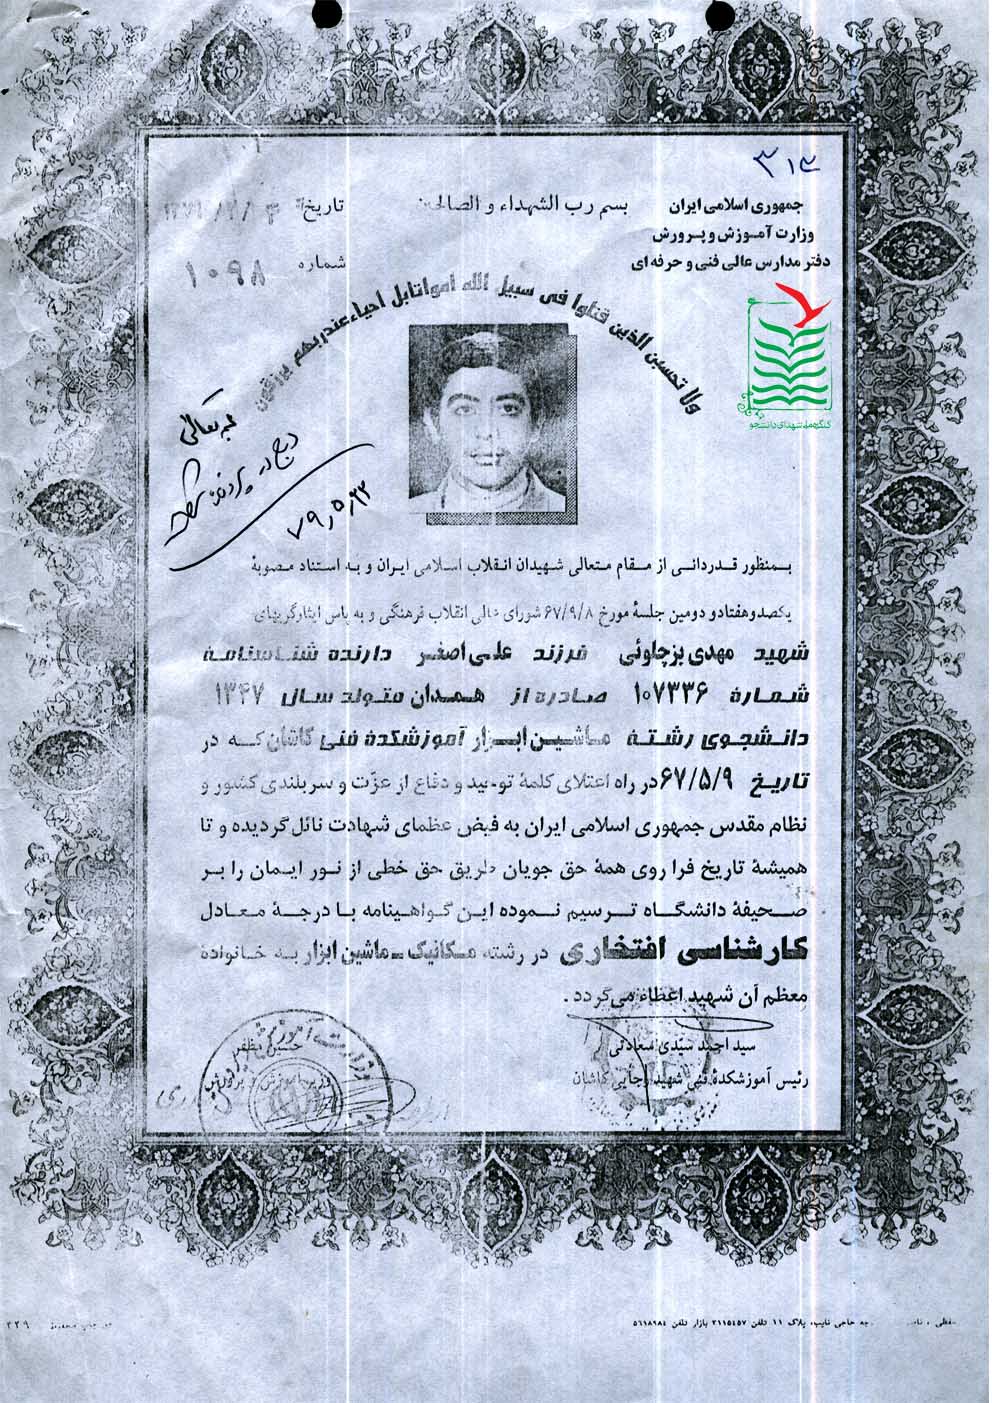 ۳۱۳
جمهوری اسلامی ایران
وزارت آموزش و پرورش
دفتر مدارس عالی فنی و حرفه ای
بسم رب الشهداء و الصالحین
تاریخ
شماره ۱۰۹۸
ولا تحسبن الذین قتلوا فی سبیل الله امواتا بل احیاء عند ربهم یرزقون
کنگره ملی شهدای دانشجو
بسمه تعالی
درج در پرونده
۷۹٫۵٫۲۲
بمنظور قدردانی از مقام متعالی شهیدان انقلاب اسلامی ایران و به استناد مصوبهٔ
یکصد و هفتاد و دومین جلسهٔ مورخ ۶۷/۹/۸ شورای عالی انقلاب فرهنگی و به پاس ایثارگریهای
شهید مهدی بزچلوئی فرزند علی اصغر دارنده شناسنامهٔ
شمارهٔ ۱۰۷۳۳۶ صادره از همدان متولد سال ۱۳۴۷
دانشجوی رشتهٔ ماشین ابزار آموزشکدهٔ فنی کاشان که در
تاریخ ۶۷/۵/۹ در راه اعتلای کلمهٔ توحید و دفاع از عزّت و سربلندی کشور و
نظام مقدس جمهوری اسلامی ایران به فیض عظمای شهادت نائل گردیده و تا
همیشهٔ تاریخ فرا روی همهٔ حق جویان طریق حق خطی از نور ایمان را بر
صحیفهٔ دانشگاه ترسیم نموده این گواهینامه با درجهٔ معادل
کارشناسی افتخاری در رشته مکانیک ـ ماشین ابزار به خانواده
معظم آن شهید اعطاء می‌گردد .
سید احمد سیّدی سعادتی
رئیس آموزشکدهٔ فنی شهید رجایی کاشان
حسین مظفر
وزیر آموزش و پرورش
حاجی نایب، پلاک ۱۱ تلفن ۳۱۱۵۴۵۷ بازار تلفن ۵۶۱۸۹۸۴